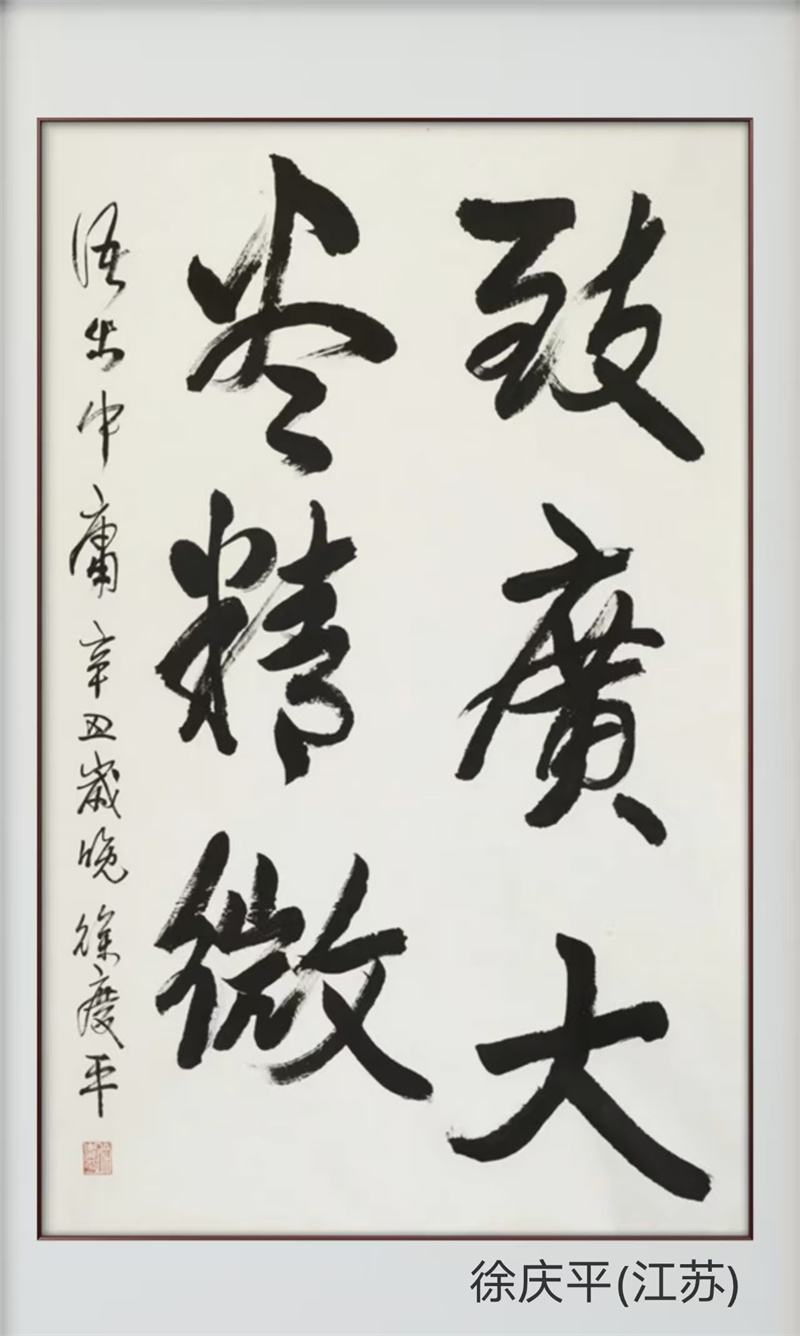 致廣大
尽精微
語出中庸 辛丑歲晚 徐慶平
徐庆平(江苏)